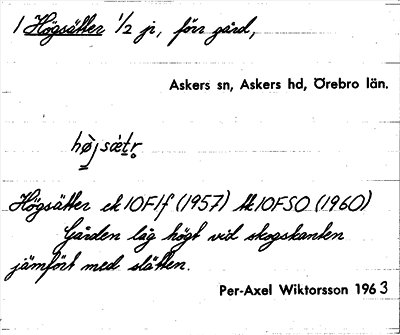 1 Högsätter 1/2 jr, förr gård,
Askers sn, Askers hd, Örebro län.
hö̀jsǽtr̥
Högsätter ek 10F1f (1957) tk 10FSO (1960)
Gården låg högt vid skogskanten
jämfört med slätten.
Per-Axel Wiktorsson 1963